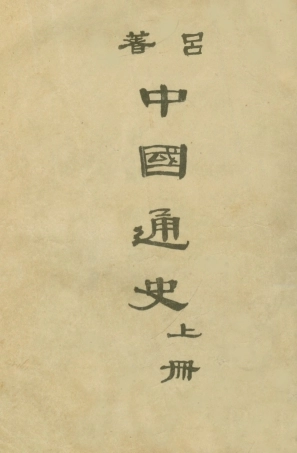 呂著
中國通史
上册